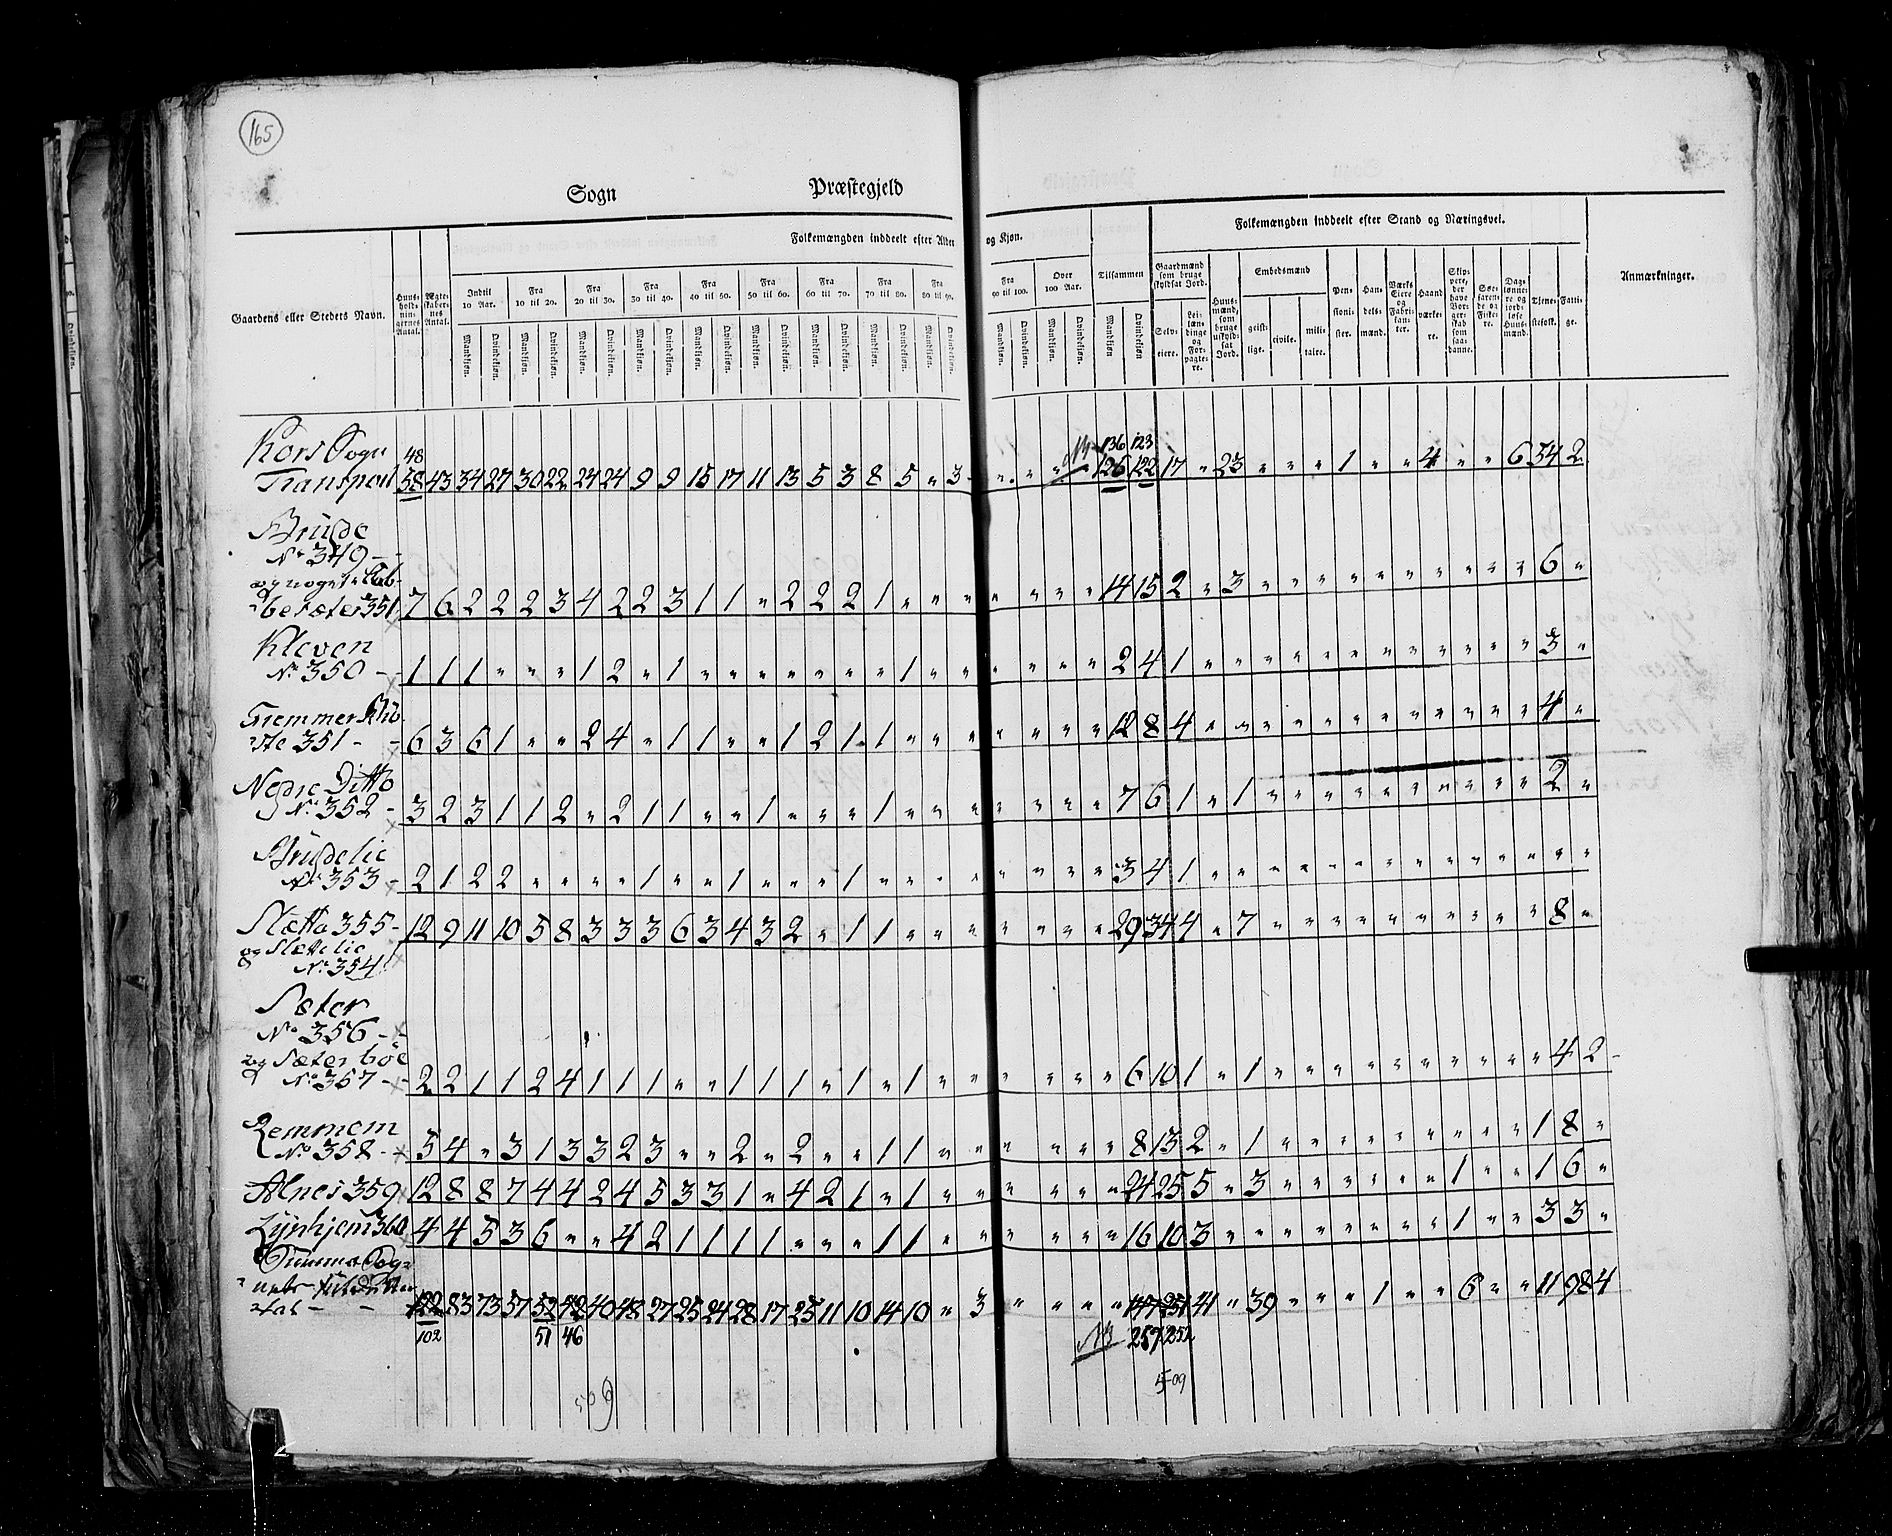 165
Sogn Præstegjeld
Folkemængden inddeelt efter Alder og Kjøn.
Folkemængden inddeelt efter Stand og Næringsvei.
Gaardens eller Stedets Navn.
Huus-hold-nin-gernes Antal.
Ægte-skaber-nes Antal.
Indtil 10 Aar.
Fra 10 til 20.
Fra 20 til 30.
Fra 30 til 40.
Fra 40 til 50.
Fra 50 til 60.
Fra 60 til 70.
Fra 70 til 80.
Fra 80 til 90.
Fra 90 til 100.
Over 100 Aar.
Tilsammen
Mandkjøn. Qvindekjøn. Mandkjøn. Qvindekjøn. Mandkjøn. Qvindekjøn. Mandkjøn. Qvindekjøn. Mandkjøn. Qvindekjøn. Mandkjøn. Qvindekjøn. Mandkjøn. Qvindekjøn. Mandkjøn. Qvindekjøn. Mandkjøn. Qvindekjøn. Mandkjøn. Qvindekjøn. Mandkjøn. Qvindekjøn. Mandkjøn Qvindekjøn
Gaardmænd som bruge skyldsat Jord.
Selv-eiere.
Lei-læn-dinge og For-pagte-re.
Huus-mænd, som bruge uskyld-sat Jord.
Embedsmænd
geist-lige.
civile.
mili-taire.
Pen-sioni-ster.
Han-dels-mænd.
Værks Eiere og Fabri-kan-ter.
Haand værke-re.
Skip-pere, der have Bor-ger-skab som saa-danne.
Søe-faren-de og Fiske-re.
Dag-lønne-re og jord-løse Huus-mænd.
Tjene-stefolk.
Fatti-ge.
Anmærkninger.
Kors Sogn 48 136 123
Transport 58 43 34 27 30 22 24 24 9 9 15 17 11 13 5 3 8 5 " 3 " " " " 126 122 17 " 23 " " " 1 " " 4 " " 6 54 2
Brude
No 349
351 7 6 2 2 2 3 4 2 2 3 1 1 " 2 2 2 1 " " " " " " " 14 15 2 " 3 " " " " " " " " " " 6 "
Kleven
No 350 - 1 1 1 " " " 1 2 " 1 " " " " " " " 1 " " " " " " 2 4 1 " " " " " " " " " " " " 3 "
351 - 6 3 6 1 " " 2 4 " 1 1 " " 1 2 1 1 " " " " " " " 12 8 4 " " " " " " " " " " " " 4 "
Nedre Ditto
No 352 - 3 2 3 1 1 2 " 2 1 1 " " 1 " " " 1 " " " " " " " 7 6 1 " 1 " " " " " " " " " " 2 "
Brudelie
No 353 - 2 1 2 2 " " " " 1 " " 1 " " " 1 " " " " " " " " 3 4 1 " " " " " " " " " " " " " "
Slætta 355 - 12 9 11 10 5 8 3 3 3 6 3 4 3 2 " 1 1 " " " " " " " 29 34 4 " 7 " " " " " " " " " " 8 "
og Slættelie
No 354
Sæter
No 356 -
og Sæterböe
No 357 - 2 2 1 1 2 4 1 1 1 " " 1 1 1 " 1 " 1 " " " " " " 6 10 1 " 1 " " " " " " " " " " 4 2
Remmem
No 358 - 5 4 " 3 1 3 3 2 3 " " 2 " 2 " " 1 1 " " " " " " 8 13 2 " 1 " " " " " " " " " 1 8 "
Alnes 359 12 8 8 7 4 4 2 4 5 3 3 1 " 4 2 1 " 1 " " " " " " 24 25 5 " 3 " " " " " " 1 " " 1 6 "
Lÿnhjem 360 4 4 5 3 6 " " 4 2 1 1 1 1 " " " 1 1 " " " " " " 16 10 3 " " " " " " " " 1 " " 3 3 "
Summa Sog-
83 73 57 52 48 40 48 27 25 24 28 17 25 11 10 14 10 " 3 " " " " 251 41 " 39 " " " 1 " " 6 " " 11 98 4
102 51 46 NB 257 252
509 509